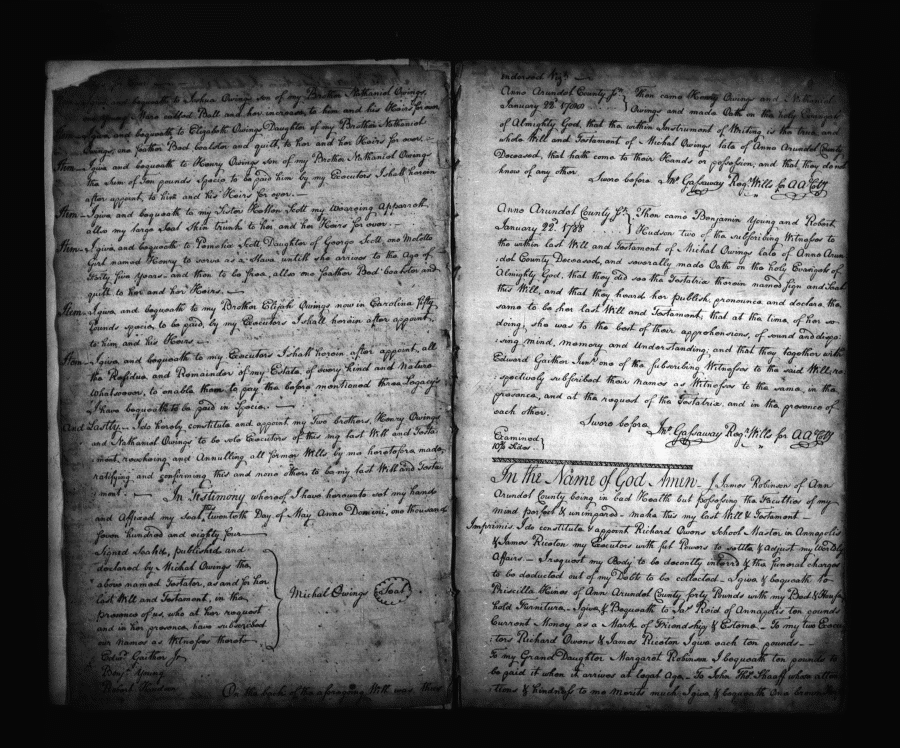 bequeath to Joshua Owings son of my Brother Nathaniel Owings
Negro named Ball and her increase, to him and his Heirs for ever
Item I give and bequeath to Elizabeth Owings Daughter of my Brother Nathaniel
Owings one feather Bed boalster and quilt, to her and her Heirs for ever.
Item I give and bequeath to Henry Owings son of my Brother Nathaniel Owings
the sum of Ten pounds Specia to be paid him by my Executors I shall herein
after appoint, to him and his Heirs for ever.
Item I give and bequeath to my Sister Scott my Wearing Apparrel
also my large Seal Skin trunk to her and her Heirs for ever
Item I give and bequeath to Scott Daughter of George Scott, one Molatto
Girl named Henny to serve as a Slave untill she arrives to the Age of
Forty five years and then to be free, also one feather Bed boalster and
quilt to her and her Heirs.
Item I give and bequeath to my Brother Elijah Owings now in Carolina fifty
Pounds specia, to be paid, by my Executors I shall herein after appoint,
to him and his Heirs
Item I give and bequeath to my Executors I shall herein after appoint, all
the Residue and Remainder of my Estate, of every kind and Nature
Whatsoever, to enable them to pay the before mentioned three Legacys
I have bequeath to be paid in Specia.
And Lastly I do hereby constitute and appoint my Two brothers, Henry Owings
and Nathaniel Owings to be sole Executors of this my last Will and Testa:
:ment, revoking and Annulling all former Wills by me heretofore made,
ratifying and confirming this and none other to be my last Will and Testa:
:ment: In Testimony whereof I have hereunto set my hand
and Affixed my Seal, this twentieth Day of May Anno Domini, one thousand
Seven hundred and eighty four
Signed Sealed, published and
declared by Michal Owings the
above named Testator, as and for her
last Will and Testament, in the
presence of us, who at her request
and in her presence, have subscribed
our names as Witnesses thereto
Michal Owings Seal
Edwd. Gaither Jr
Benj. Young
Robert Hudson
On the back of the aforegoing Will was thus
indorsed Viz.
Anno Arundel County Sc. Then came Henry Owings and Nathaniel
January 22d. 1788 Owings and made Oath on the holy Evangels
of Almighty God, that the within Instrument of Writing is the true and
whole Will and Testament of Michal Owings late of Anno Arundel County
Deceased, that hath come to their Hands or possession, and that they do not
know of any other
Sworn before Jno. Gassaway Regr. Wills for AA Coty
Anno Arundel County Sc. Then came Benjamin Young and Robert
January 22d. 1788 Hudson two of the subscribing Witnesses to
the within last Will and Testament of Michal Owings late of Anno Arun:
:del County Deceased, and severally made Oath on the holy Evangels of
Almighty God, that they did see the Testatrix therein named sign and Seal
this Will, and that they heard her publish, pronounce and declare the
same to be her last Will and Testament; that at the time, of her so
doing, she was to the best of their apprehensions, of sound and dispo:
:sing mind, memory and Understanding; and that they together with
Edward Gaither Junr. one of the subscribing Witnesses to the said Will, re:
:spectively subscribed their names as Witnesses to the same, in the
presence, and at the request of the Testatrix, and in the presence of
each other.
Sworn before Jno. Gassaway Regr. Wills for AA Coty
Examined
In the Name of God Amen. I James Robinson of Ann
Arundel County being in bad Health but possessing the Faculties of my
mind perfect & unimpaired make this my last Will & Testament
Imprimis I do constitute & appoint Richard Owens School Master in Annapolis
& James Ricoton my Executors with full Powers to settle & adjust my Worldly
Affairs I request my Body to be decently interred & the funeral charges
to be deducted out of my Debt to be collected I give & bequeath to
Priscilla Hines of Ann Arundel County forty Pounds with my Bed &
hold Furniture I give & Bequeath to Jas. Reid of Annapolis ten pounds
Current Money as a Mark of Friendship & Esteem To my two Execu
:tors Richard Owens & James Ricoton I give each ten pounds
To my Grand Daughter Margaret Robinson I bequeath ten pounds to
be paid it when it arrives at legal Age To John Thos. Shaaff whose atten
:tions & kindness to me Merits much I give & bequeath one brown